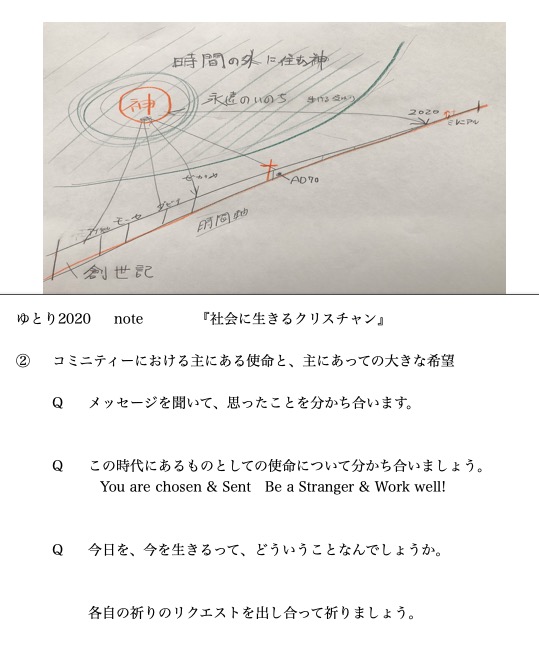 時間の外に住む神
神
永遠のいのち
2020
ゼカリヤ
AD70
ダビデ
モーセ
時間軸
創世記
ゆとり2020 note 『社会に生きるクリスチャン』
② コミニティーにおける主にある使命と、主にあっての大きな希望
Q メッセージを聞いて、思ったことを分かち合います。
Q この時代にあるものとしての使命について分かち合いましょう。
You are chosen & Sent Be a Stranger & Work well!
Q 今日を、今を生きるって、どういうことなんでしょうか。
各自の祈りのリクエストを出し合って祈りましょう。